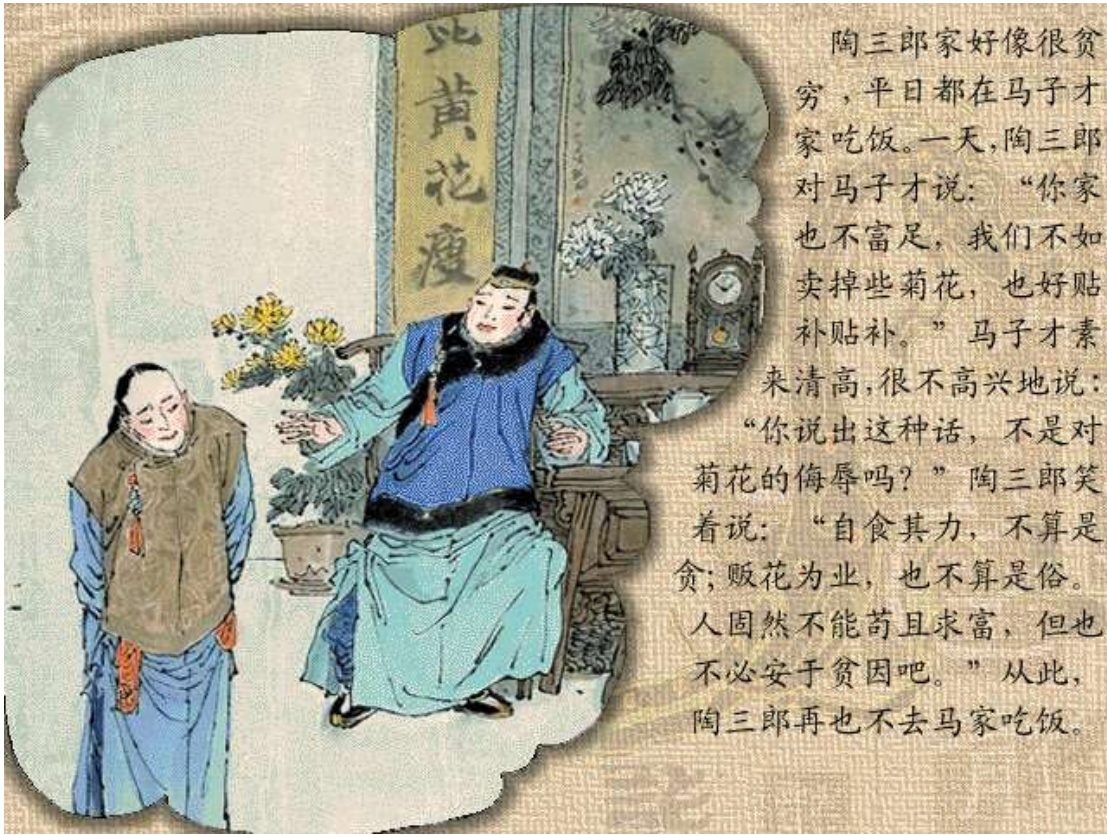 比黄花瘦
陶三郎家好像很贫
穷，平日都在马子才
家吃饭。一天，陶三郎
对马子才说：“你家
也不富足，我们不如
卖掉些菊花，也好贴
补贴补。”马子才素
来清高，很不高兴地说：
“你说出这种话，不是对
菊花的侮辱吗？”陶三郎笑
着说：“自食其力，不算是
贪；贩花为业，也不算是俗。
人固然不能苟且求富，但也
不必安于贫因吧。”从此，
陶三郎再也不去马家吃饭。